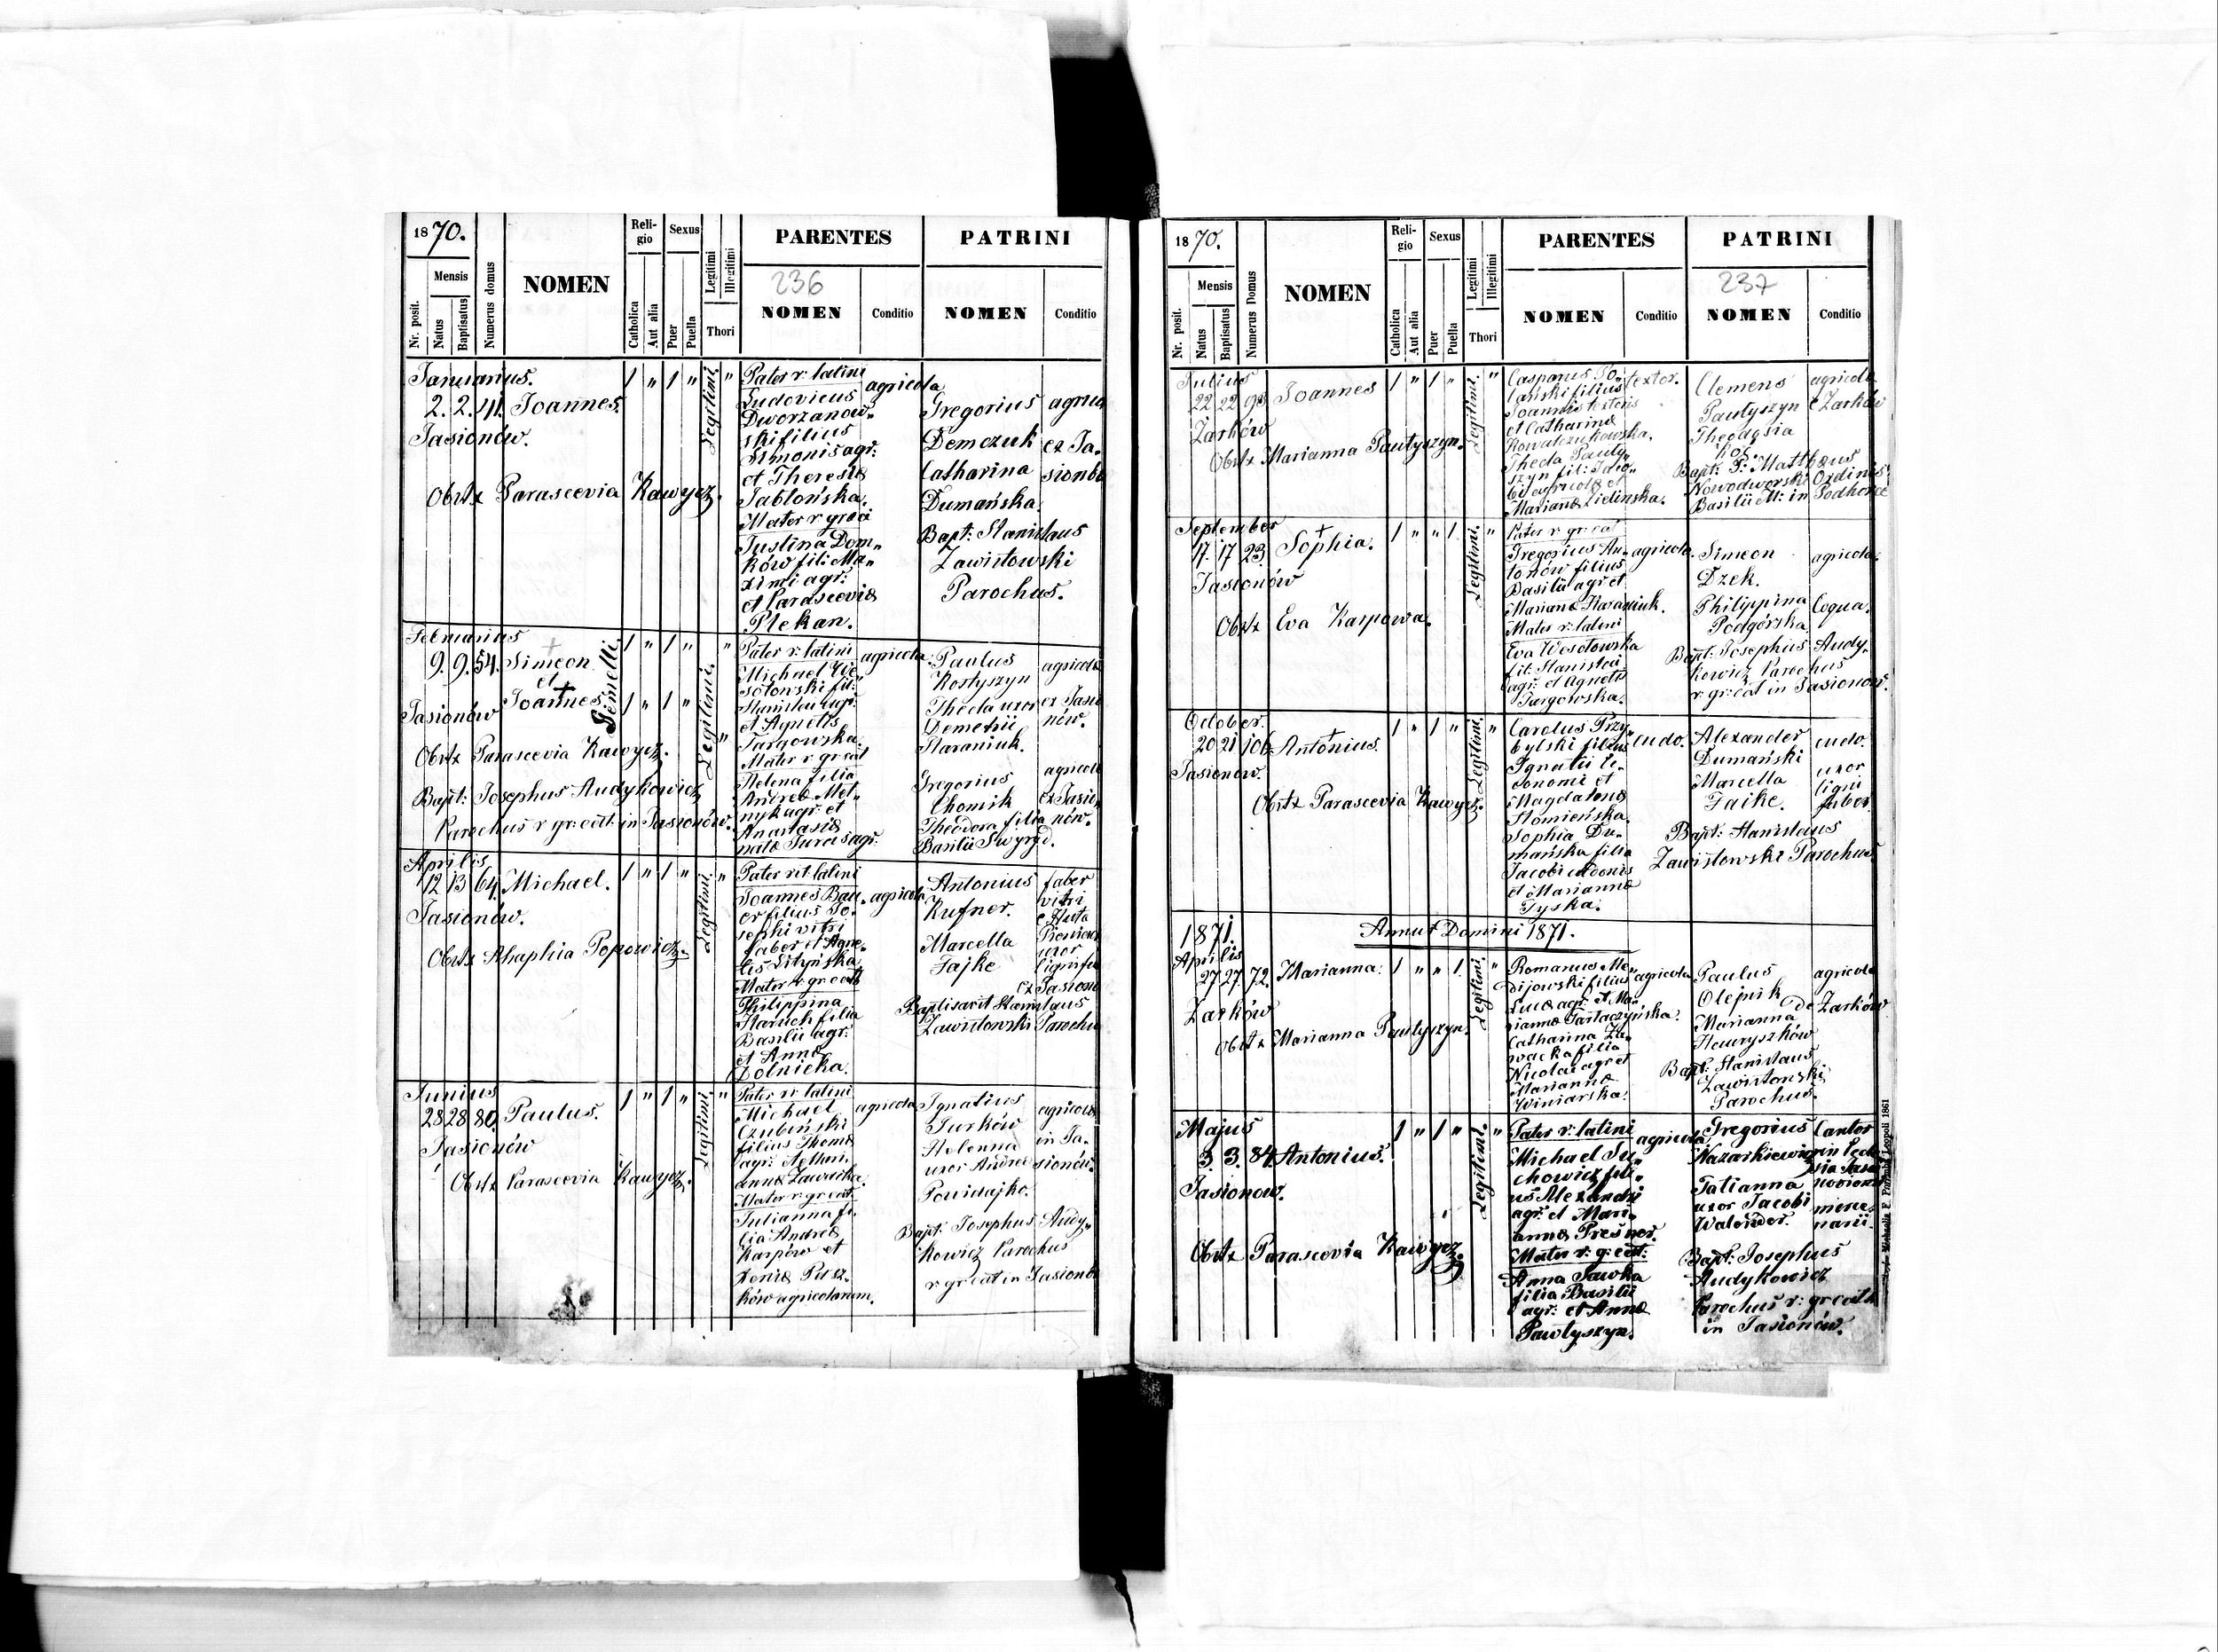 1870.
Nr. posit.
Mensis
Natus
Baptisatus
Numerus domus
NOMEN
Religio
Catholica
Aut alia
Sexus
Puer
Puella
Legitimi
Illegitimi
Thori
PARENTES
236
NOMEN
Conditio
PATRINI
NOMEN
Conditio
Januarius.
2. 2. 41. Joannes.
Jasionów.
Obstx Parascevia Kawycz.
1 " 1 "
Legitimi.
"
Pater r: latini
Ludovicus
Dworzanow„
ski filius
Simonis agr:
et Theresiæ
Jabłońska.
Mater r græci
Justina Dom„
ków fil: Ma„
ximi agr:
et Parasceviæ
Piekan.
agricola
Gregorius
Demczuk
Catharina
Dumańska.
Bapt: Stanislaus
Zawistowski
Parochus.
ex Ja„
Februarius
9. 9. 54. Simeon
et
Joannes.
Gemelli
Jasionów
Obstx Parascevia Kawycz.
Bapt: Josephus Audykowicz
Parochus r gr: cat: in Jasionów.
1 " 1 "
1 " 1 "
Legitimi.
"
"
Pater r: latini
Michael We„
sołowski fil:
Stanislai agr:
et Agnetis
Targowska.
Mater r gr cat
Helena filia
Andreæ Mel„
nyk agr: et
Anastasiæ
natæ Turcis agr:
agricola
Paulus
Kostyszyn
Theda uxor
Demetrii
Haraniuk.
Gregorius
Chomik
Theodora filia
Basilii Swyryd.
agricola
ex Jasio
nów.
agricola
ex Jasio„
nów.
Aprilis
12 13 64. Michael.
Jasionów.
Obstx Ahaphia Popowicz.
1 " 1 "
Legitimi.
"
Pater rit latini
Joannes Bau„
er filius Jo„
sephi vitri
faber et Agne„
tis Lityńska
Mater r gr cat
Philippina
Haruch filia
Basilii agr:
et Annæ
Dolnicka.
agricola
Antonius
Kufner.
Marcella
Fajke
Baptisavit Stanislaus
Zawistowski Parochu
faber
vitri
e Huta
uxor
Junius
28 28 80. Paulus.
Jasionów
Obstx Parascevia Kawycz.
1 " 1 "
Legitimi.
"
Pater r: latini
Michael
Czubiński
filius Thomæ
Annæ Zawadka.
Mater r gr cat
Julianna fi„
lia Andreæ
Karpów et
Xeniæ Pusz„
ków agricolarum.
agricola
Ignatius
Jurków
Helenna
uxor Andreæ
Powidajko.
Bapt: Josephus Audy„
kowicz Parochus
r gr cat in Jasionó
agricola
in Ja„
sionów.
1870.
Nr. posit.
Mensis
Natus
Baptisatus
Numerus Domus
NOMEN
Religio
Catholica
Aut alia
Sexus
Puer
Puella
Legitimi
Illegitimi
Thori
PARENTES
NOMEN
Conditio
PATRINI
237
NOMEN
Conditio
Julius
22 22 93 Joannes
Zarków
Obstx Marianna Pautyszyn.
1 " 1 "
Legitimi.
"
Casparus Po„
lański filius
Joannis textoris
et Catharinæ
Kowalczukowska.
Theda Pauty„
szyn fil: Jaco„
bi agricolæ et
Mariannæ Zielinska.
textor.
Clemens
Pautyszyn
Theodosia
Bapt: P: Matthæus
Nowodworski Ordinis
Basilii M: in Podhorce
agricola
e Zarków
September
17. 17 23. Sophia.
Jasionów
Obstx Eva Karpowa.
1 " " 1
Legitimi.
"
Pater r gr: cat
Gregorius An„
tonów filius
Basilii agr et
Marianæ Haraniuk.
Mater r: latini
Eva Wesołowska
fil: Stanislai
agr: et Agnetis
Targowska.
agricola.
Simeon
Dzek.
Philippina
Podgórska
Bapt: Josephus Audy„
kowicz Parochus
r gr: cat in Jasionów.
agricola.
Coqua.
October.
20 21 106 Antonius.
Jasionów.
Obstx Parascevia Kawycz.
1 " 1 "
Legitimi.
"
Carolus Przy„
bylski filius
Ignatii œ„
conomi et
Magdalenæ
Słomieńska.
Sophia Du„
mańska filia
Jacobi cudonis
et Mariannæ
Tyska.
cudo.
Alexander
Dumański
Marcella
Faike.
Bapt: Stanislaus
Zawistowski Parochus
cudo.
uxor
ligni
faber
1871.
Annus Domini 1871.
Aprilis
27 27. 72. Marianna.
Zarków
Obstx Marianna Pautyszyn.
1 " " 1.
Legitimi.
"
Romanus Me„
dijowski filius
Lucæ agr: et Ma„
riannæ Tartaczyńska.
Catharina Za„
wacka filia
Nicolai agr et
Mariannæ
Winiarska.
agricola
Paulus
Olejnik
Marianna
Hawryszków
Bapt: Stanislaus
Zawistowski
Parochus.
agricola
de Zarków
Majus
3. 3. 84. Antonius.
Jasionow.
Obstx Parascevia Kawycz.
1 " 1 "
Legitimi.
"
Pater r: latini
Michael Su„
chowicz fili„
us Alexandri
agr: et Mari„
annæ Presner.
Mater r: gr: cat:
Anna Sawka
filia Basilii
agr: et Annæ
Pawtyszyn.
agricola
Gregorius
Nazarkiewicz
Tatianna
uxor Jacobi
Walonder.
Bapt: Josephus
Audykowicz
Parochus r: gr cath
in Jasionów.
Cantor